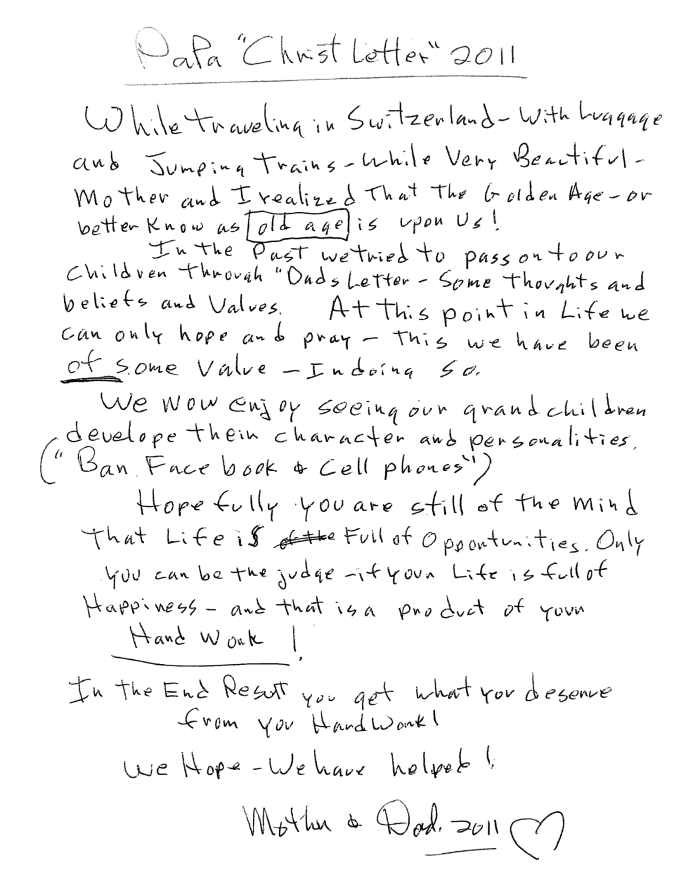 Papa "Christ Letter" 2011
While traveling in Switzerland - With Luggage
and Jumping Trains - While Very Beautiful -
Mother and I realized That The Golden Age - or
better Know as old age is upon Us!
In the Past we tried to pass on to our
Children Through "Dads Letter - Some Thoughts and
beliefs and Values. At this point in Life we
can only hope and pray - this we have been
of some Value - In doing so.
We Now enjoy seeing our grand children
develope their character and personalities.
("Ban Face book & Cell phones")
Hopefully you are still of the mind
That Life is of the Full of Opoortunities. Only
you can be the judge - if your Life is full of
Happiness - and that is a product of your
Hand Work!
In The End Result you get what you deserve
from you Hand Work!
We Hope - We have helped!
Mother & Dad. 2011